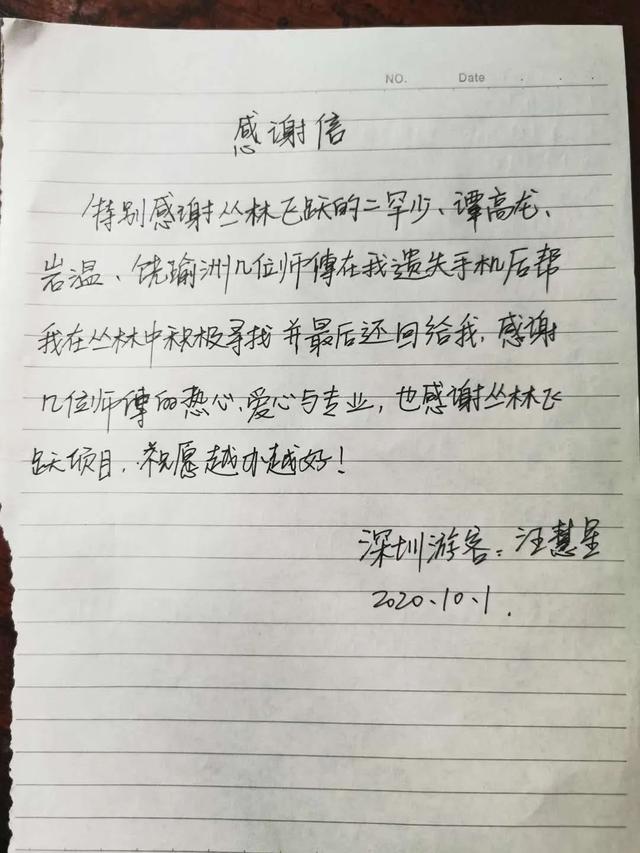 NO. Date
感谢信
特别感谢丛林飞跃的二罕少、谭高龙、
岩温、饶瑜洲几位师傅在我遗失手机后帮
我在丛林中积极寻找并最后还回给我，感谢
几位师傅的热心、爱心与专业，也感谢丛林飞
跃项目，祝愿越办越好！
深圳游客：汪慧星
2020.10.1.